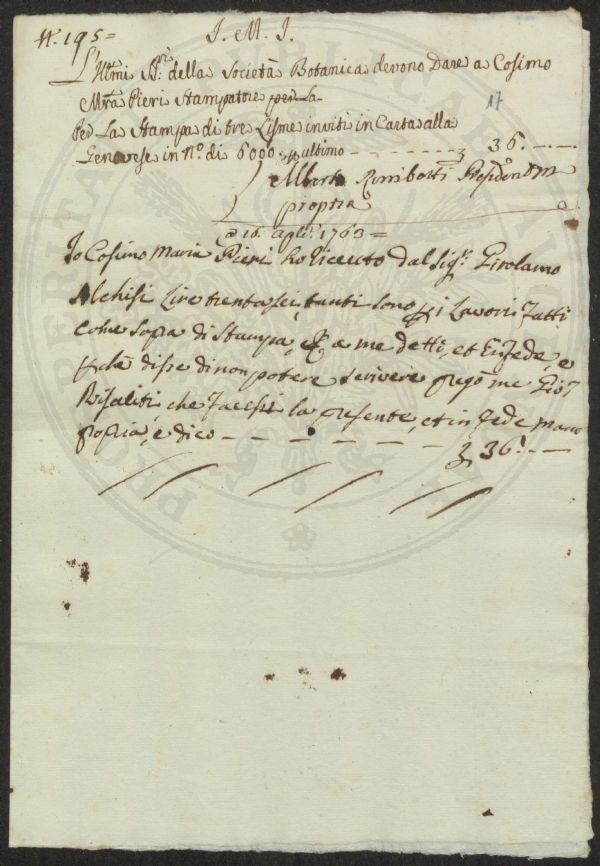 N.° 195=
J. M. J.
L'Ill.mi SS.ri della Società Botanica devono Dare a Cosimo
M.ria Pieri Stampatore per La
17
Per La Stampa di tre inviti in Carta alla
Genovese in N.° di 6000 ultimo - - - - 36. - -
Alberto Rimbotti Presid.
propria
a 16. aple: 1763=
Io Cosimo Maria Pieri ho riceuto dal Sig.r Girolamo
Alchisi Lire trentasei, tanti sono p i Lavori fatti
come sopra di Stampa, a me detti, et in fede, e
p che disse di non potere scrivere pregò me Gio:
Risaliti che facessi la presente, et in fede mano
propria, e dico - - - - - -
36. - -